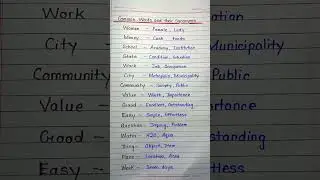 Common Words and their Synonyms
Women – Female, Lady
Money – Cash, Funds
School – Academy, Institution
State – Condition, Situation
Work – Job, Occupation
City – Metropolis, Municipality
Community – Society, Public
Value – Worth, Importance
Good – Excellent, Outstanding
Easy – Simple, Effortless
Question – Inquiry, Problem
Water – H2O, Aqua
Thing – Object, Item
Place – Location, Area
Week – Seven days
Work –
City –
Commun
Value –
Good –
Easy –
Municipality
Public
standing
tless